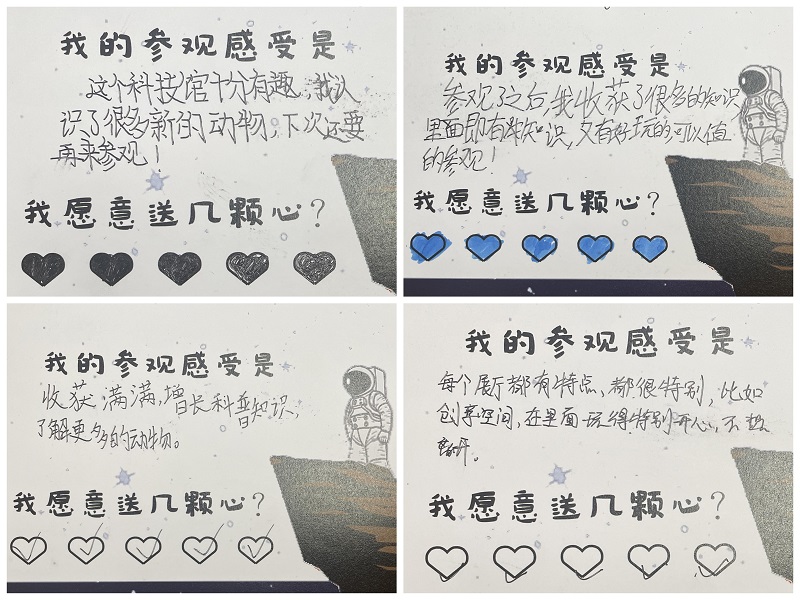 我的参观感受是
这个科技馆十分有趣,我认
识了很多新的动物,下次还要
再来参观!
我愿意送几颗心?
我的参观感受是
参观了之后,我收获了很多的知识
里面即有知识,又有好玩的可以值
的参观!
我愿意送几颗心?
我的参观感受是
收获满满,增长科普知识,
了解更多的动物。
我愿意送几颗心?
我的参观感受是
每个展厅都有特点,都很特别,比如
创享空间,在里面玩得特别开心,不想
离开。
我愿意送几颗心?